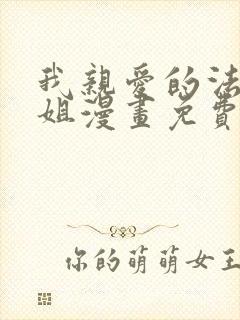 我親愛的法
姐漫畫免費
你的萌萌女王